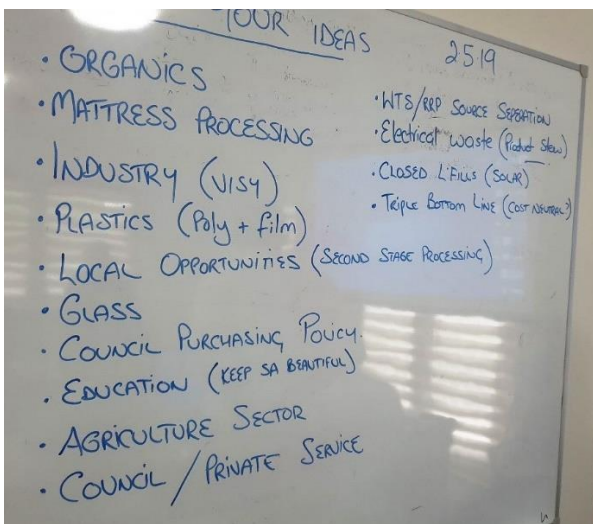 YOUR IDEAS
2519
• ORGANICS
• MATTRESS PROCESSING
• INDUSTRY (VISY)
• PLASTICS (Poly + film)
• LOCAL OPPORTUNITIES (SECOND STAGE PROCESSING)
• GLASS
• COUNCIL PURCHASING POLICY.
• EDUCATION (KEEP SA BEAUTIFUL)
• AGRICULTURE SECTOR
• COUNCIL / PRIVATE SERVICE
• WTS/RRP SOURCE SEPERATION
• Electrical waste (Product Stew)
• CLOSED L'FILLS (SOLAR)
• TRIPLE BOTTOM LINE (COST NEUTRAL?)